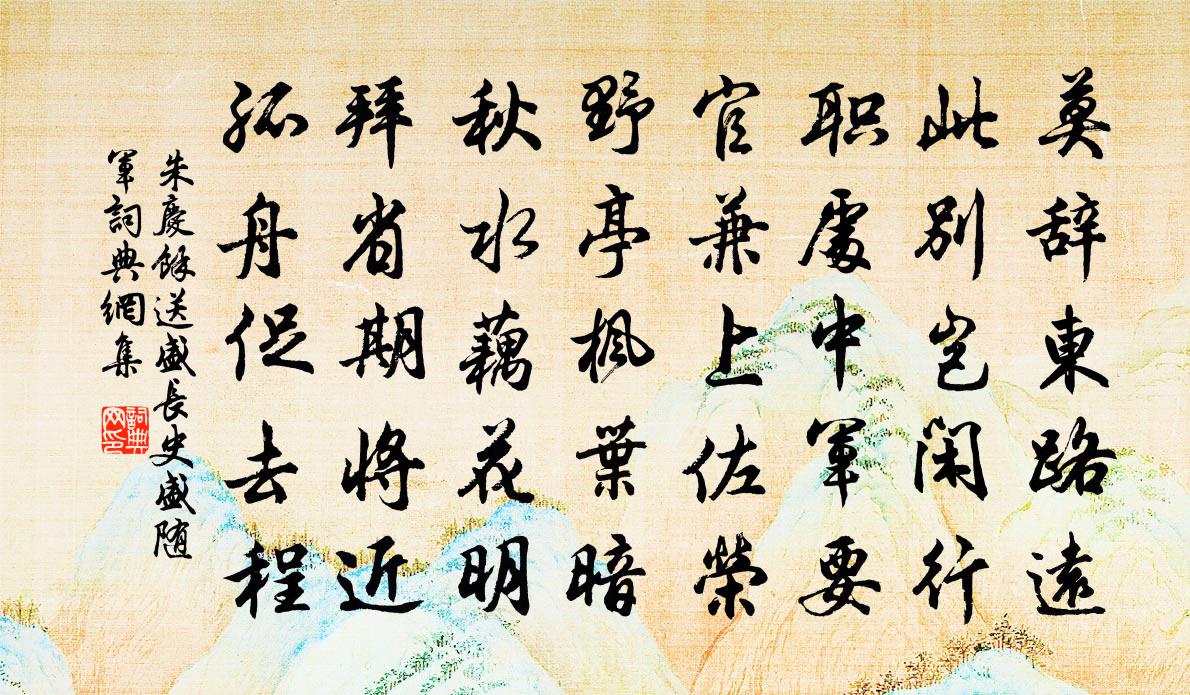 莫辞東路遠
此別豈闲行
职處中軍要
官兼上佐榮
野亭楓葉暗
秋水藕花明
拜省期將近
孤舟促去程
朱慶餘送盛長史盛随
軍詞典網集
詞典
网印